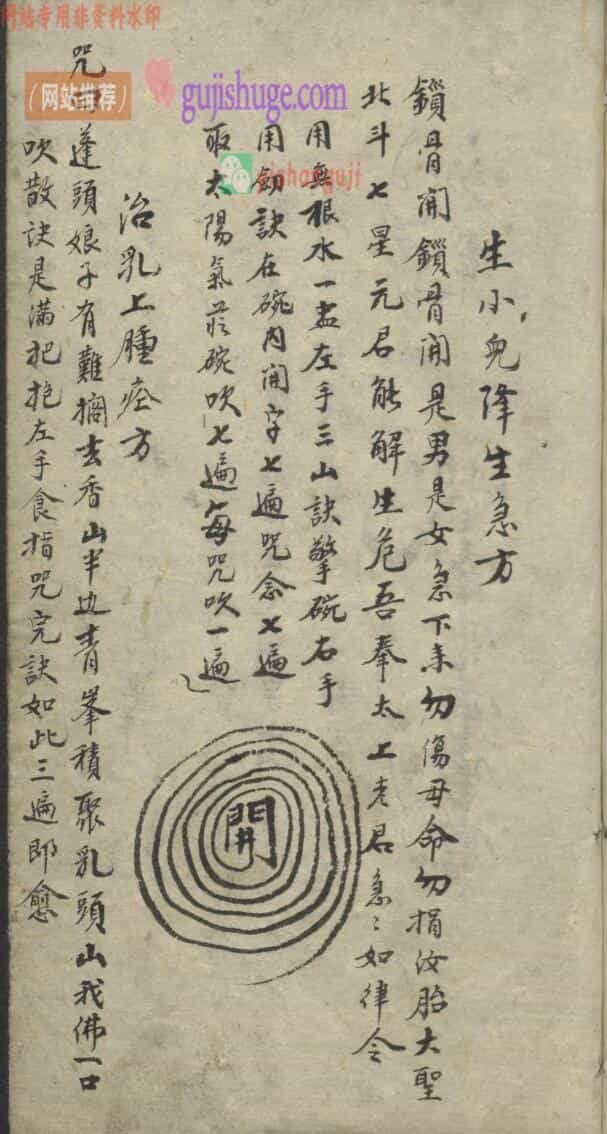 网站专用非资料水印
（网站推荐）
gujishuge.com
生小兒降生急方
鎖骨開鎖骨開是男是女急下来勿傷母命勿損汝胎大聖
北斗七星元君能解生危吾奉太上老君急〻如律令
用無根水一盃左手三山訣擎碗右手
用劍訣在碗内開字七遍咒念七遍
取太陽氣碗吹七遍每咒吹一遍
開
治乳上腫痊方
咒蓬頭娘子有難擱去香山半边青峯積聚乳頭山我佛一口
吹散訣是满把抱左手食指咒完訣如此三遍即愈